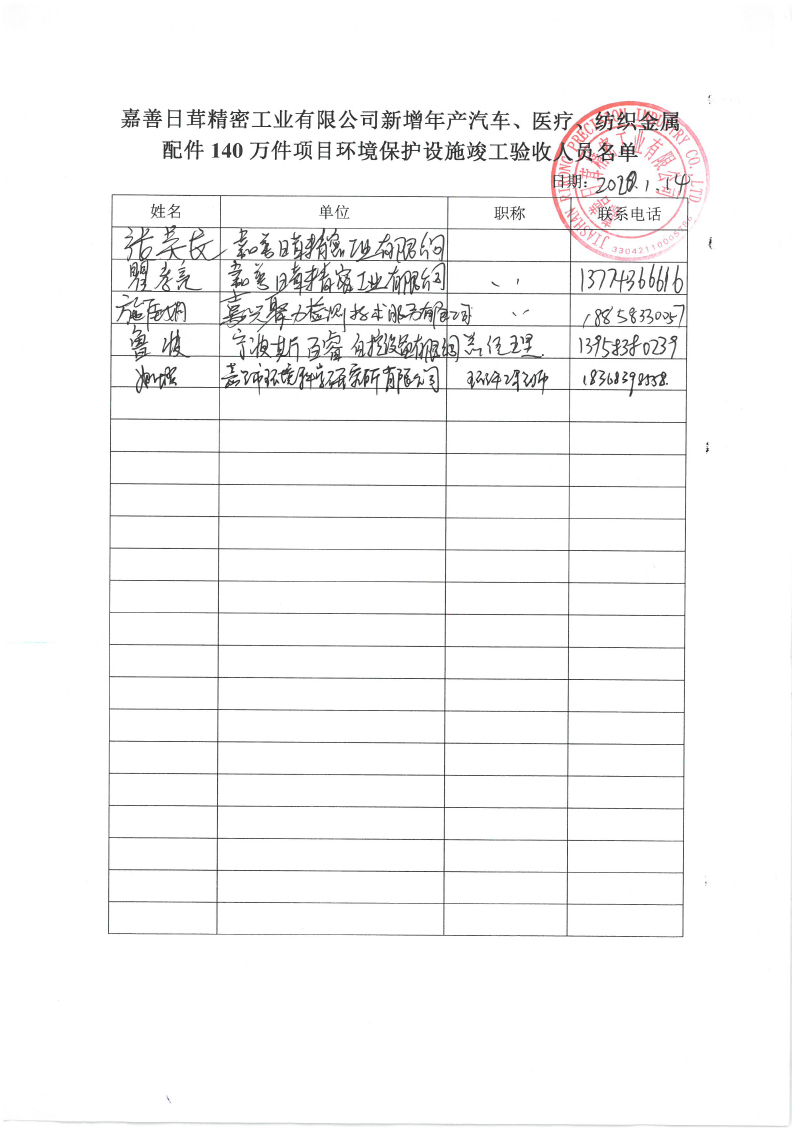 嘉善日茸精密工业有限公司新增年产汽车、医疗、纺织金属
配件 140 万件项目环境保护设施竣工验收人员名单
日期：2020.1.14
姓名 单位 职称 联系电话
嘉善日茸精密工业有限公司
嘉善日茸精密工业有限公司 13774366616
嘉兴聚力检测技术服务有限公司 18858330057
鲁波 宁波斯百睿自控设备有限公司 总经理 13958380239
有限公司
JIASHAN RIRONG PRECISION INDUSTRY CO. LTD
嘉善日茸精密工业有限公司